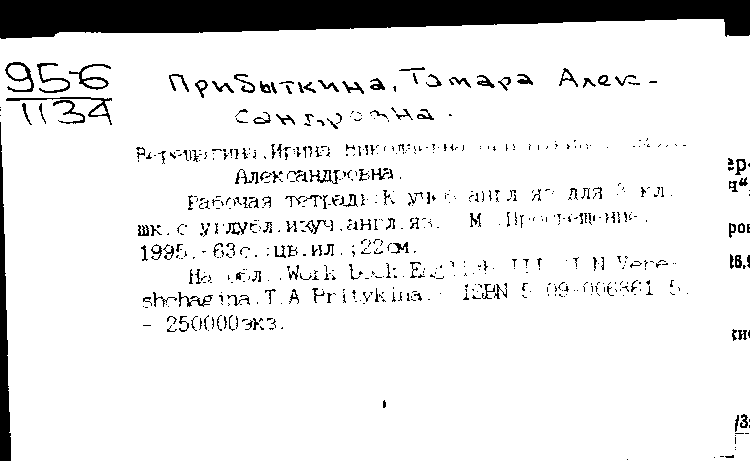 95-6
1134
Прибыткина, Тамара Алек-
сандровна.
Верещагина, Ирина Николаевна
Александровна.
Рабочая тетрадь: К учеб. англ. яз. для 3 кл.
шк. с углубл. изуч. англ. яз. - М.: Просвещение,
1995.-63с.:цв.ил.;22см.
На обл.: Work book. English III. I.N.Vere-
shchagina. T.A.Pritykina. - ISBN 5-09-006861-5.
- 250000экз.